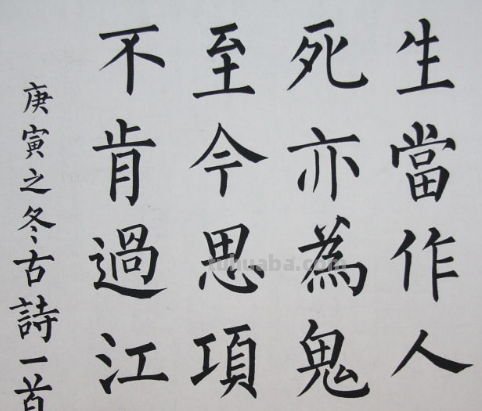 生當作人
死亦為鬼
至今思項
不肯過江
庚寅之冬古詩一首
tuhuaba.com